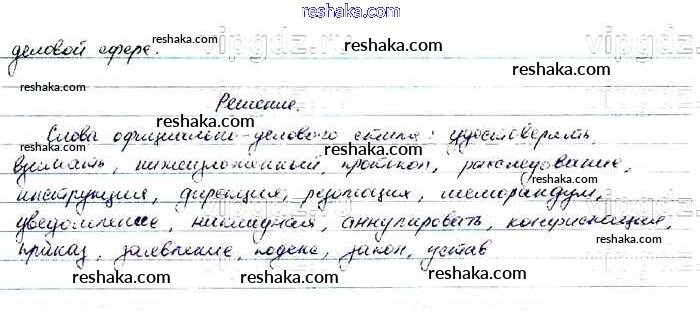 reshaka.com
деловой сфере. reshaka.com reshaka.com
vipgdz.ru
reshaka.com reshaka.com
Решение.
reshaka.com
Слова официально-делового стиля: удостоверять,
взимать, нижеизложенный, протокол, расследование,
reshaka.com reshaka.com
инструкция, дирекция, резолюция, меморандум,
уведомление, накладная, аннулировать, конфискация,
reshaka.com reshaka.com
приказ, заявление, кодекс, закон, устав
reshaka.com reshaka.com
reshaka.com